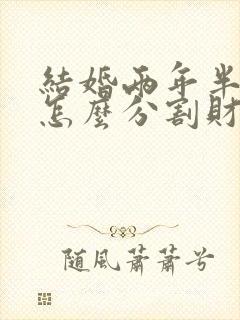 結婚兩年半
怎麼分割財
隨風蕭蕭兮